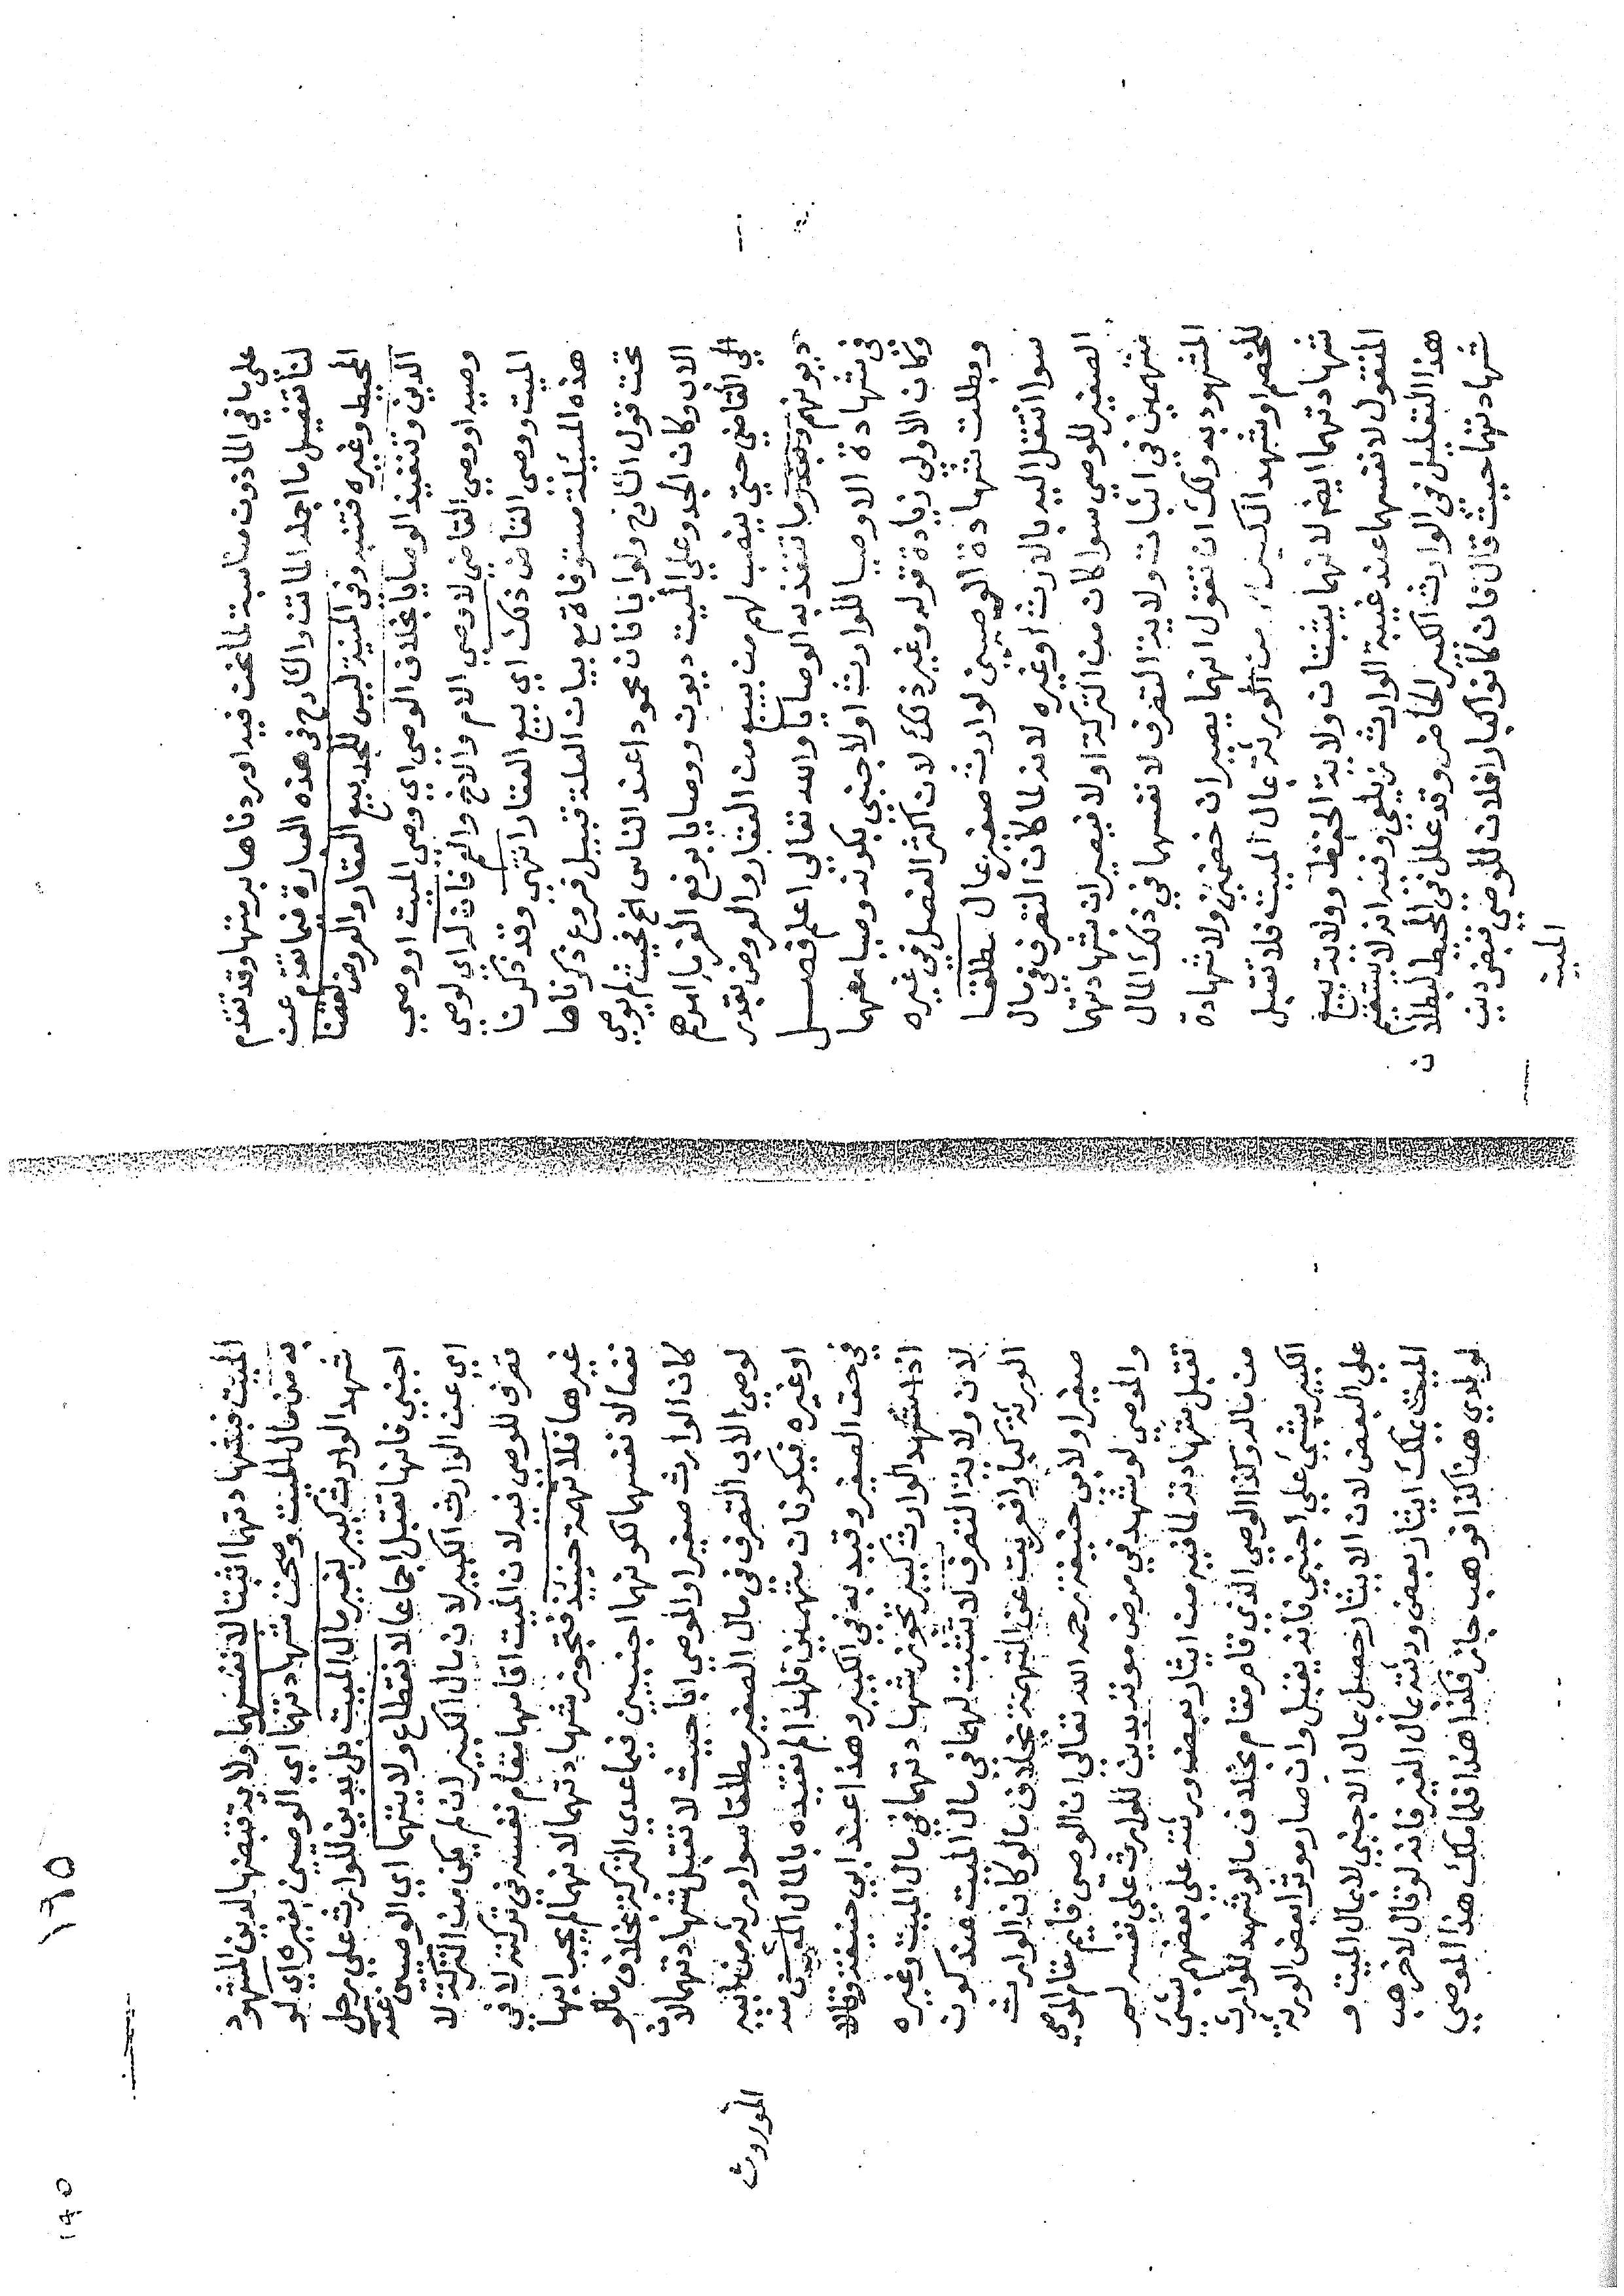 على باقي الماذون مناسبة لما نحن فيه اوردناها برمتها وقد تقدم
لنا تفصيل ما اجمله الماتن والشارح في هذه العبارة فيما تقدم عن
المحيط وغيره فتنبه وفي المنية ليس للجد بيع العقار والعروض لقضا
الدين وتنفيذ الوصايا بخلاف الوصي اي وصي الميت او وصي
وصيه او وصي القاضي لا وصي الام والاخ والعم فان له اي لوصي
الميت ووصي القاضي ذلك اي بيع العقار انتهى وقد ذكرنا
هذه المسئلة مستوفاة مع بيان العلة قبيل فروع ذكرناها
تحت قول الشارح ولو ابا فان محمودا عند الناس الخ فحيث لم يوصي
الاب وكان الجد وعلى الميت ديون ووصايا يرفع الغرما امرهم
الى القاضي حتى ينصب لهم من يبيع من العقار والعروض بقدر
ديونهم وبقدر ما تنفذ به الوصايا والله تعالى اعلم فصل
في شهادة الاوصيا للوارث او لاجنبي بكونه وصيا معهما
وكان الاولى زيادة قوله وغير ذلك لان اكثر الفصل في غيره
وبطلت شهادة الوصيين لوارث صغير بمال مطلقا
سوا انتقل اليه بالارث او غيره لانه لما كان التصرف في مال
الصغير للوصي سوا كان من التركة او لا فيصيران بشهادتهما
متهمين في اثبات ولاية التصرف لانفسهما في ذلك المال
المشهود به ولك ان تقول انهما يصيران خصمين ولا شهادة
للخصم او شهد الكبير من الورثة بمال الميت فلا تقبل
شهادتهما ايضا لانهما يثبتان ولاية الحفظ وولاية بيع
المنقول لانفسهما عند غيبة الوارث زيلعي وفيه انه لا يستقيم
هذا التعليل في الوارث الكبير الحاضر وقد علل في المحيط لبطلان
شهادتهما حيث قال فان كانوا كبارا فلان للوصي قبض دين
الميت
١٦٥
١٩٥
الميت فبشهادتهما اثبتا لانفسهما ولاية قبضها لدين المشهود
به من مال الميت وصحت شهادتهما اي الوصيين بغيره اي لو
شهد الوارث كبير بغير مال الميت بل بدين للوارث على رجل
اجنبي فانها تقبل اجماعا لانقطاع ولايتهما اي الوصيين عنه
اي عن الوارث الكبير لان مال الكبير ان لم يكن من التركة لا
تصرف للوصي فيه لان الميت اقامهما مقام نفسه في تركته لا في
غيرها فلا تهمة حينئذ فتجوز شهادتهما لانهما لم يجب ابها
نفعا لانفسهما لكونهما اجنبيين فيما عدى التركة بخلاف ما لو
كان الوارث صغيرا والموصي ابا حيث لا تقبل شهادتهما لان
لوصي الاب التصرف في مال الصغير مطلقا سوا ورثه من ابيه
او غيره فيكونان متهمين فلهذا لم نقيده بالمال الموروث منه
في حق الصغير وقيد به في الكبير وهذا عند ابي حنيفة وقالا
اذا شهد الوارث كبير تجوز شهادتهما في مال الميت وغيره
لان ولاية التصرف لا تثبت لهما في مال الميت عند كون
الورثة كبارا فعريت عن التهمة بخلاف ما لو كان الوارث
صغيرا ولابي حنيفة رحمه الله تعالى ان الوصي قايم مقام الموصي
والموصي لو شهد في مرض موته بدين للوارث على نفسه لم
تقبل شهادته لما فيه من ايثار بعض ورثته على بعضهم بشئ
من ماله وكذا الوصي الذي قام مقامه بخلاف ما لو شهد للوارث
الكبير بشئ على اجنبي فانه يقبل وان صار موثرا بعض الورثة
على البعض لان الايثار حصل بمال الاجنبي لا بمال الميت و
الميت يملك ايثار بعض ورثته بمال الغير فانه لو قال لاخر هب
لولدي هذا كذا فوهب جاز فكذا هذا فلما ملك هذا الموصي